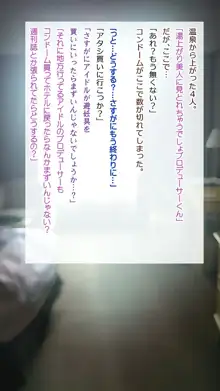 温泉から上がった４人。
「湯上がり美人に見とれちゃうでしょプロデューサーくん」
だが、ここで…
「あれ？もう無くない？」
コンドームがここで数が切れてしまった。
「アタシ買いに行こっか？」
「っと…どうする？…さすがにもう終わりに…」
「さすがにアイドルが避妊具を
買いにいったらまずいんじゃないでしょうか…？」
「それに地方行ってるアイドルのプロデューサーも
コンドーム買ってホテルに戻ったらなんかまずいんじゃない？
週刊誌とか張られてたらどうするの？」